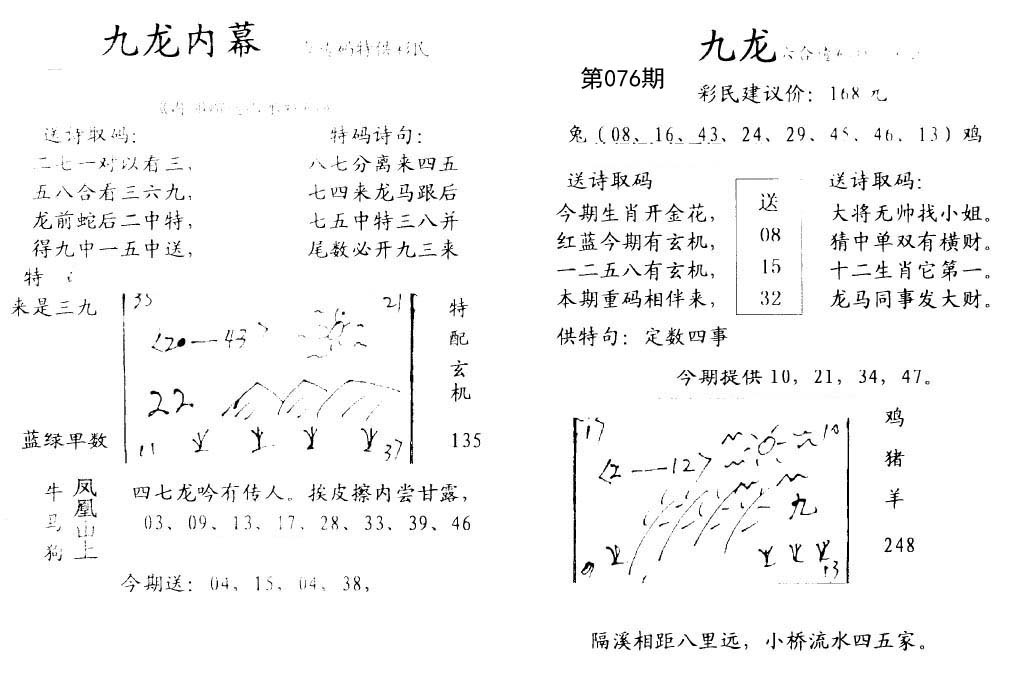 九龙内幕
码特供彩民
送诗取码：
二七一对以有三，
五八合看三六九，
龙前蛇后二中特，
得九中一五中送，
特码诗句：
八七分离来四五
七四来龙马跟后
七五中特三八并
尾数必开九三来
特
来是三九
蓝绿早数
35
21
〈20—43〉
22
11
37
特
配
玄
机
135
牛
马
狗
凤凰山上
四七龙吟有传人。挨皮擦内尝甘露，
03、09、13、17、28、33、39、46
今期送：04，15，04，38，
九龙
第076期
彩民建议价：168元
兔（08、16、43、24、29、45、46、13）鸡
送诗取码
今期生肖开金花，
红蓝今期有玄机，
一二五八有玄机，
本期重码相伴来，
送
08
15
32
送诗取码：
大将无帅找小姐。
猜中单双有横财。
十二生肖它第一。
龙马同事发大财。
供特句：定数四事
今期提供 10，21，34，47。
17
10
〈2—12〉
九
13
鸡
猪
羊
248
隔溪相距八里远，小桥流水四五家。